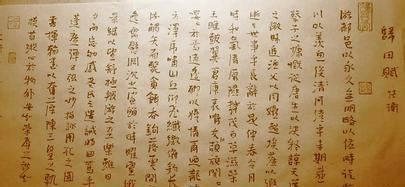 歸田賦 張衡
游都邑以永久無明略以佐時徒臨
川以羨魚俟河清乎未期感
蔡子之慷慨從唐生以決疑諒天道
之微昧追漁父以同嬉超埃塵以遐
逝與世事乎長辭於是仲春令月
時和氣清原隰鬱茂百草滋榮
王雎鼓翼倉庚哀鳴交頸頡頏關
關嚶嚶於焉逍遙聊以娛情爾乃龍吟
方澤虎嘯山丘仰飛纖繳俯釣長
流觸矢而斃貪餌吞鉤落雲間
之逸禽懸淵沉之鯊鰡於時曜靈俄
景繼以望舒極般遊之至樂雖日
夕而忘劬感老氏之遺誡將迴駕乎
蓬廬彈五絃之妙指詠周孔之圖
書揮翰墨以奮藻陳三皇之軌
模苟縱心於物外安知榮辱之所